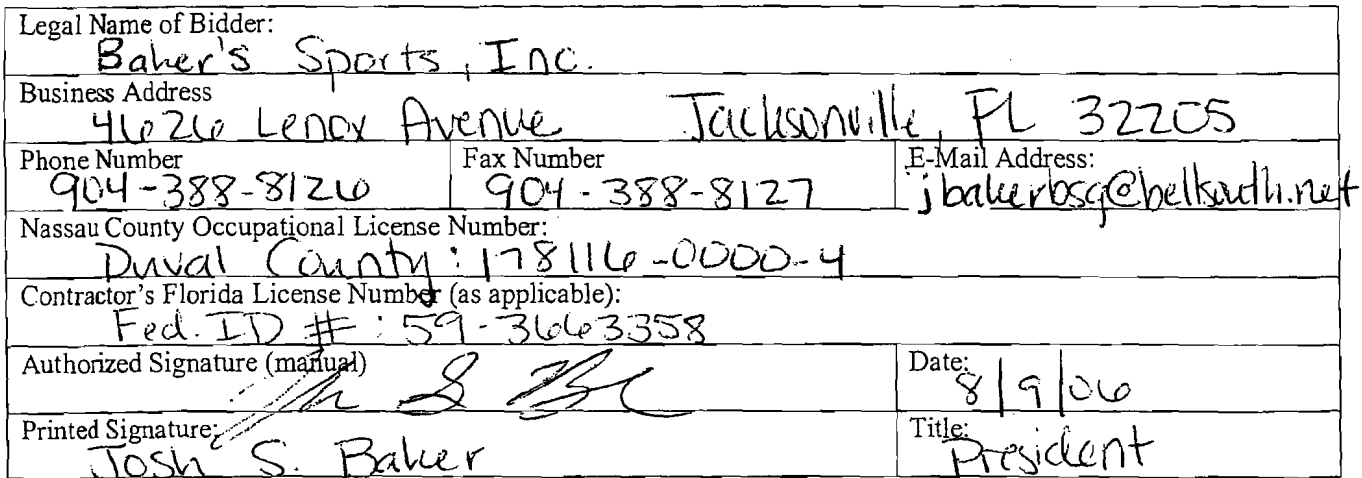 Legal Name of Bidder:
Baker's Sports, Inc.
Business Address
4626 Lenox Avenue Jacksonville, FL 32205
Phone Number Fax Number E-Mail Address:
904-388-8126 904-388-8127 jbakerbsg@bellsouth.net
Nassau County Occupational License Number:
Duval County: 178116-0000-4
Contractor's Florida License Number (as applicable):
Fed. ID #: 59-3663358
Authorized Signature (manual) Date:
8/9/06
Printed Signature: Title:
Josh S. Baker President